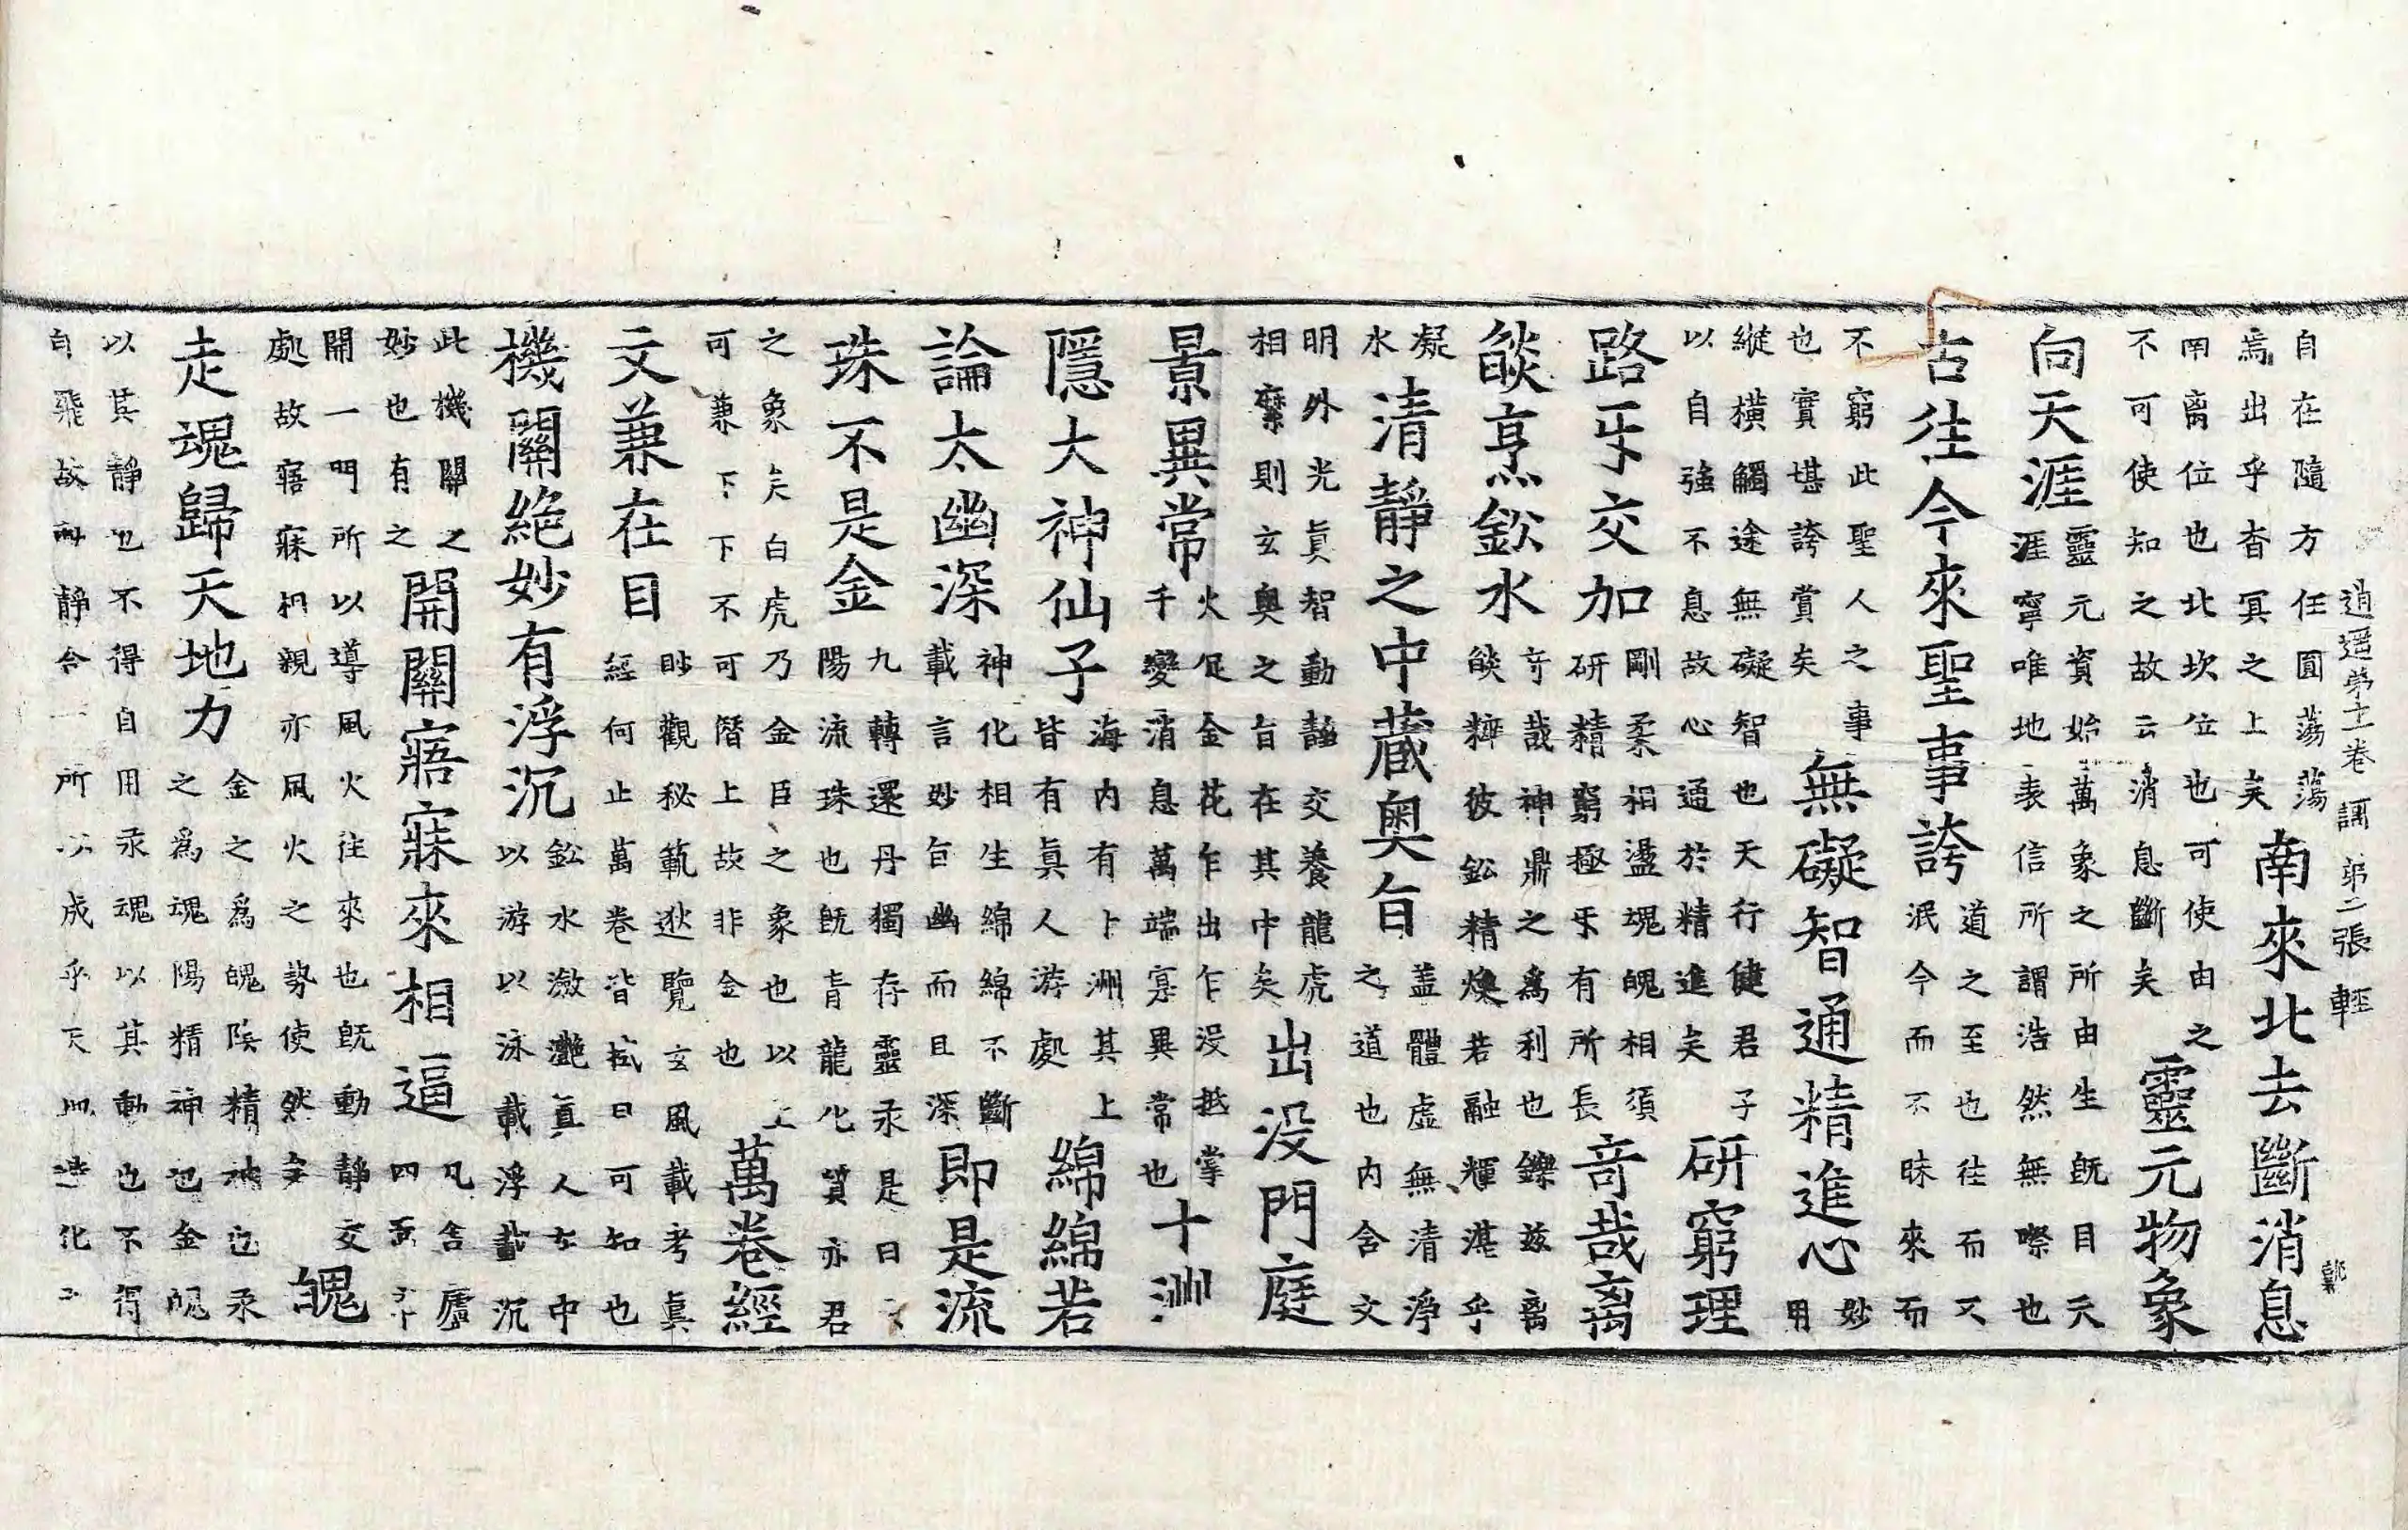 逍遥第十二卷 第二張 輕
自在隨方任圓蕩蕩
焉出乎杳冥之上矣
南來北去斷消息
南离位也北坎位也可使由之
不可使知之故云消息斷矣
靈元物象
向天涯
靈元資始萬象之所由生旣目天
涯寧唯地表信所謂浩然無際也
古往今來聖事誇
道之至也往而又
泯今而不昧來而
不窮此聖人之事
也實堪誇賞矣
無礙智通精進心
妙
用
縱橫觸途無礙智也天行健君子
以自強不息故心通於精進矣
研窮理
路㸦交加
剛柔相盪魂魄相須
研精窮極㸦有所長
奇哉离
燄烹鈆水
奇哉神鼎之爲利也鑠兹离
燄粹彼鈆精煥若融輝湛乎
凝
水
清靜之中藏奥旨
盖體虚無清淨
之道也内含文
明外光眞智動靜交養龍虎
相縻則玄奥之旨在其中矣
出没門庭
景異常
火促金花乍出乍没抵掌
千變消息萬端寔異常也
十洲
隱大神仙子
海内有十洲其上
皆有眞人游處
綿綿若
論太幽深
神化相生綿綿不斷
載言妙旨幽而且深
即是流
珠不是金
九轉還丹獨存靈汞是曰
陽流珠也旣青龍化質亦君
之象矣白虎乃金臣之象也以上
可兼下下不可僭上故非金也
萬卷經
文兼在目
眇觀秘範逖覽玄風載考眞
經何止萬卷皆拭目可知也
機關絶妙有浮沉
鈆水瀲灩眞人在中
以游以泳載浮載沉
此機關之
妙也有之
開關寤寐來相逼
凡舍廬
四面
開一門所以導風火往來也旣動靜交
處故寤寐相親亦風火之勢使然矣
魄
走魂歸天地力
金之爲魄陰精神也汞
之爲魂陽精神也金魄
以其靜也不得自用汞魂以其動也不得
自飛故兩靜合一所以成乎天地造化